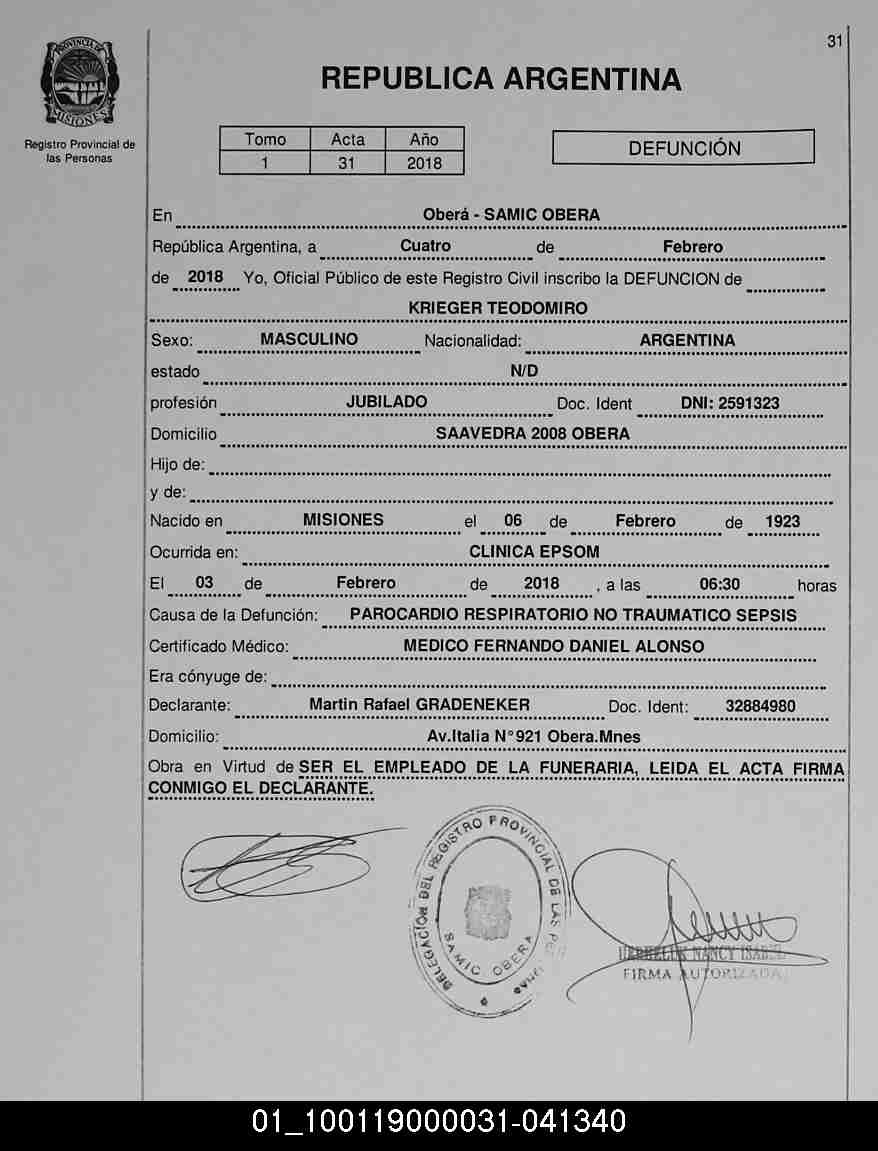 31
PROVINCIA DE
MISIONES
Registro Provincial de
las Personas
REPUBLICA ARGENTINA
Tomo Acta Año
1 31 2018
DEFUNCIÓN
En Oberá - SAMIC OBERA
República Argentina, a Cuatro de Febrero
de 2018 Yo, Oficial Público de este Registro Civil inscribo la DEFUNCION de
KRIEGER TEODOMIRO
Sexo: MASCULINO Nacionalidad: ARGENTINA
estado N/D
profesión JUBILADO Doc. Ident DNI: 2591323
Domicilio SAAVEDRA 2008 OBERA
Hijo de:
y de:
Nacido en MISIONES el 06 de Febrero de 1923
Ocurrida en: CLINICA EPSOM
El 03 de Febrero de 2018 , a las 06:30 horas
Causa de la Defunción: PAROCARDIO RESPIRATORIO NO TRAUMATICO SEPSIS
Certificado Médico: MEDICO FERNANDO DANIEL ALONSO
Era cónyuge de:
Declarante: Martin Rafael GRADENEKER Doc. Ident: 32884980
Domicilio: Av.Italia N°921 Obera.Mnes
Obra en Virtud de SER EL EMPLEADO DE LA FUNERARIA, LEIDA EL ACTA FIRMA
CONMIGO EL DECLARANTE.
DELEGACIÓN DEL REGISTRO PROVINCIAL DE LAS
SAMIC OBERA
NANCY
FIRMA AUTORIZADA
01_100119000031-041340